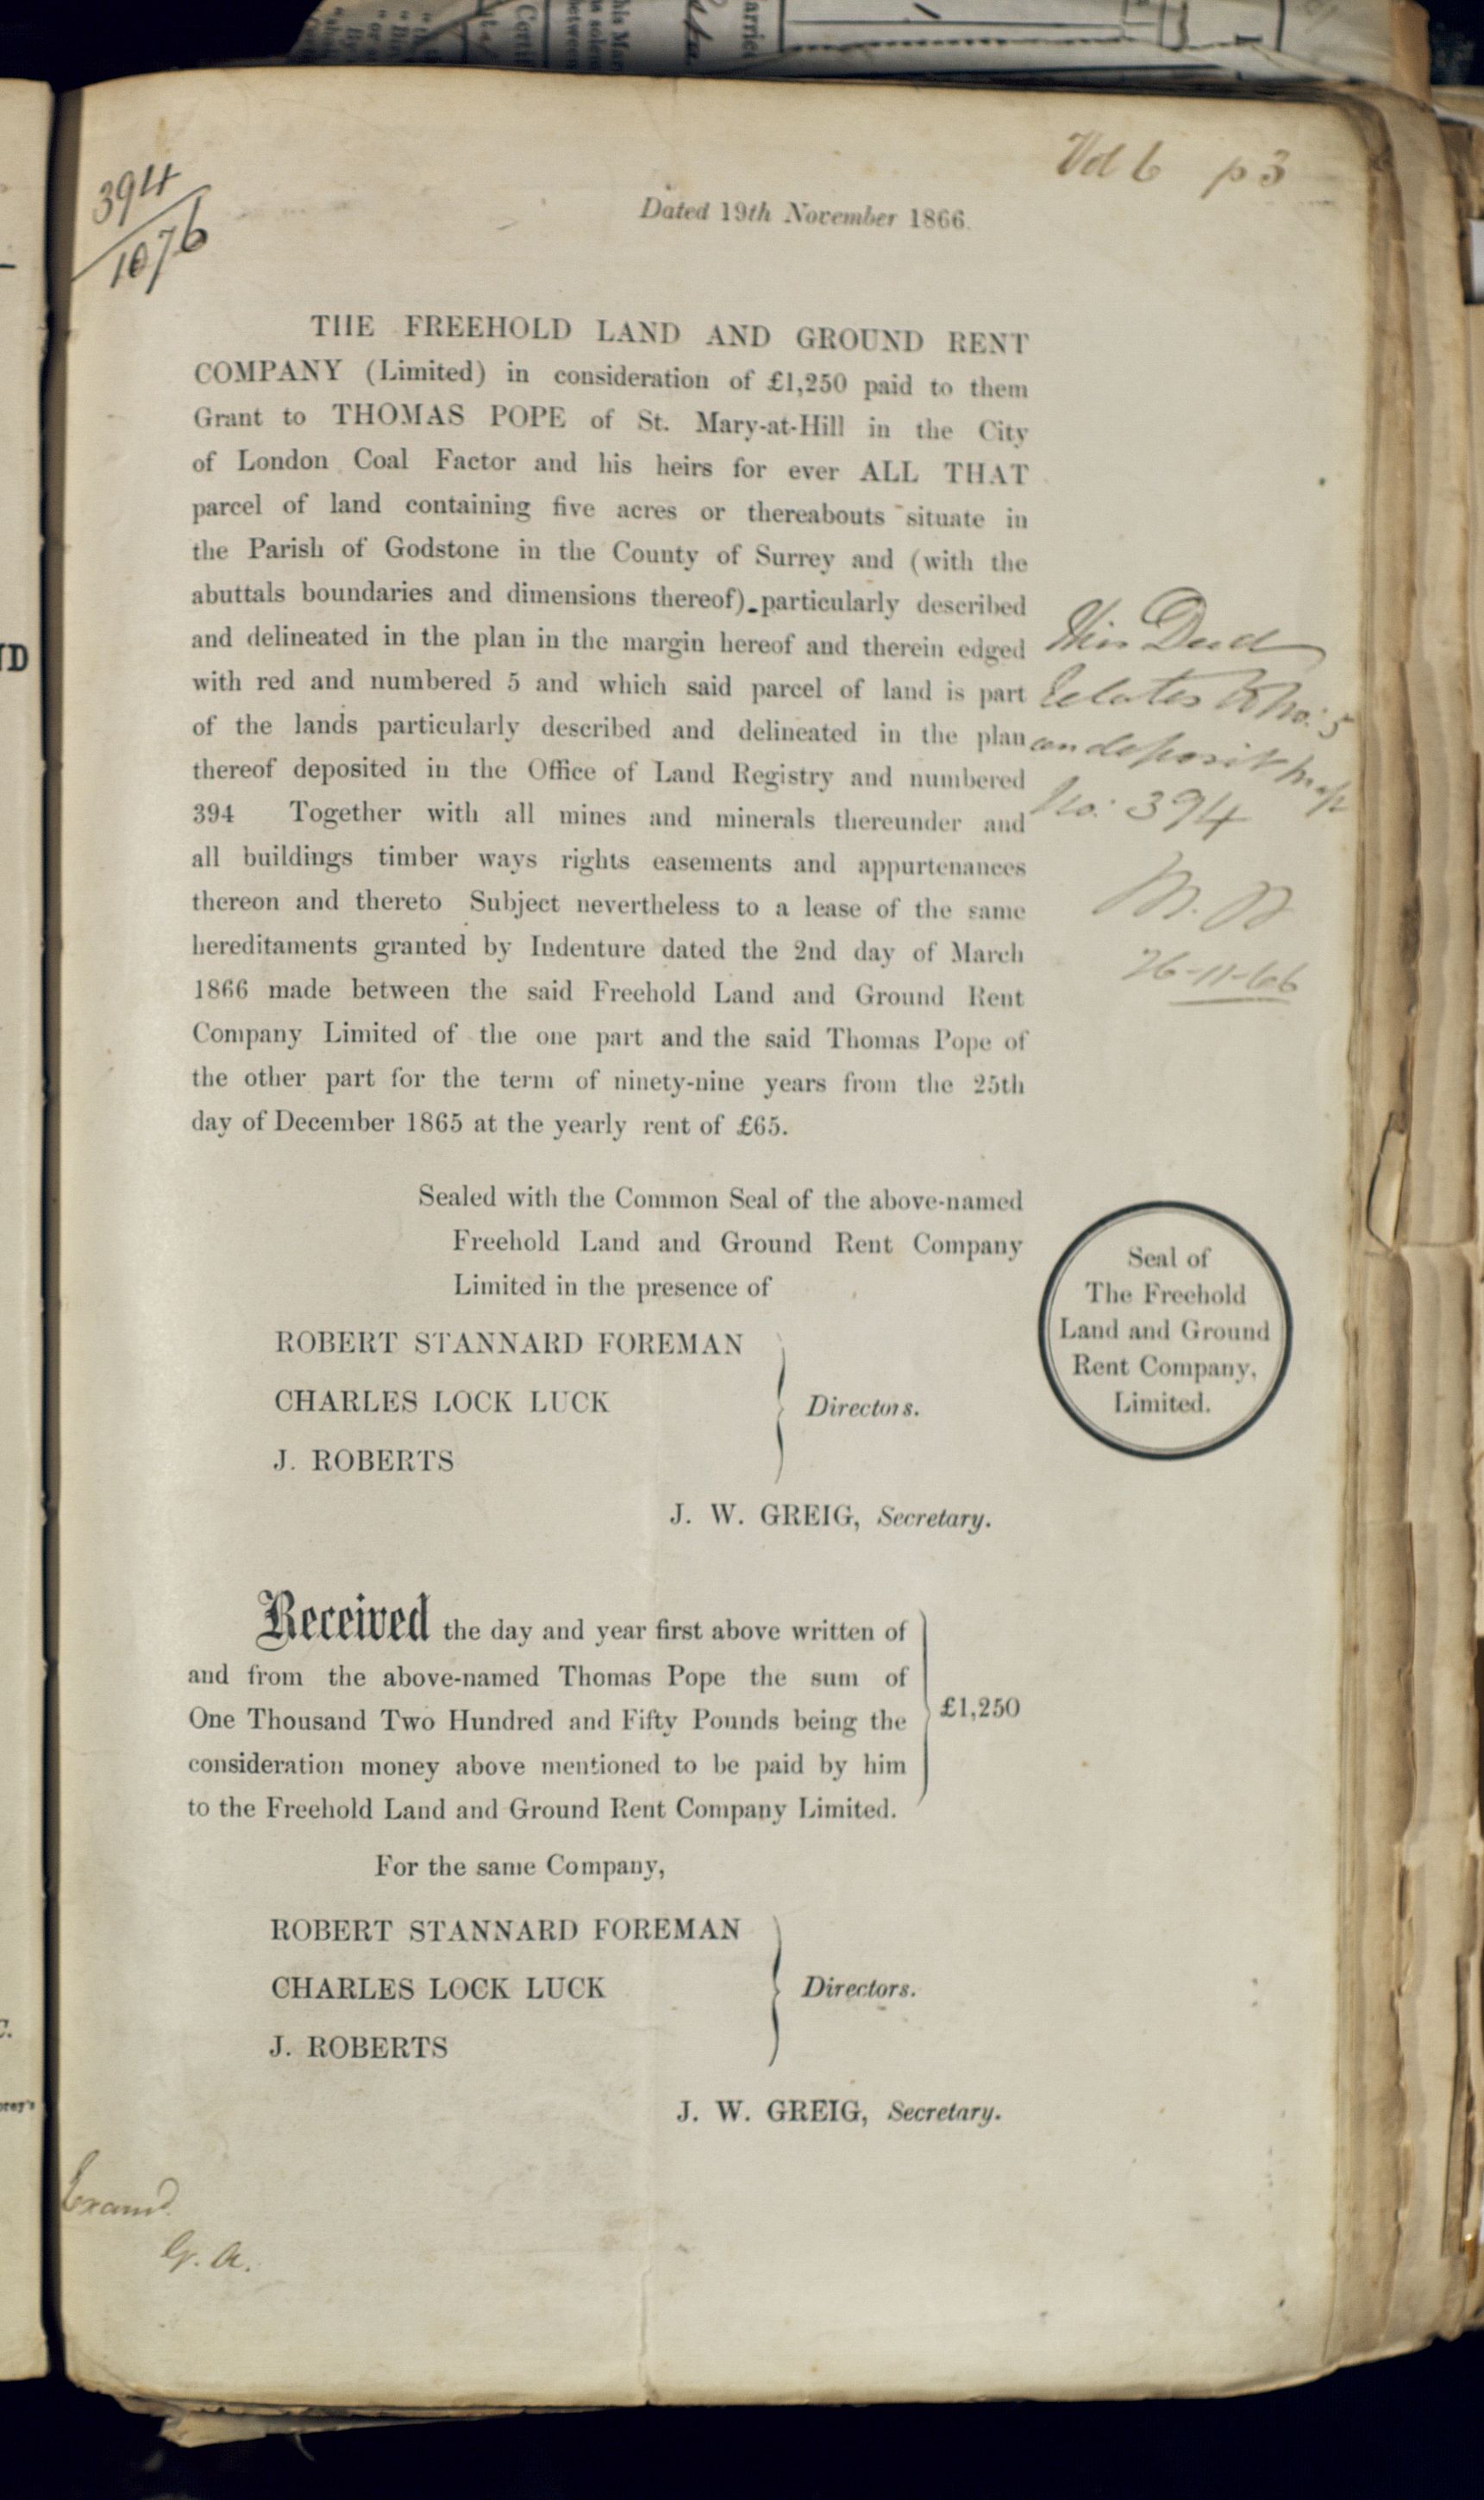 394
1076
Vol 6 p 3
Dated 19th November 1866.
THE FREEHOLD LAND AND GROUND RENT
COMPANY (Limited) in consideration of £1,250 paid to them
Grant to THOMAS POPE of St. Mary-at-Hill in the City
of London Coal Factor and his heirs for ever ALL THAT
parcel of land containing five acres or thereabouts situate in
the Parish of Godstone in the County of Surrey and (with the
abuttals boundaries and dimensions thereof) particularly described
and delineated in the plan in the margin hereof and therein edged
with red and numbered 5 and which said parcel of land is part
of the lands particularly described and delineated in the plan
thereof deposited in the Office of Land Registry and numbered
394 Together with all mines and minerals thereunder and
all buildings timber ways rights easements and appurtenances
thereon and thereto Subject nevertheless to a lease of the same
hereditaments granted by Indenture dated the 2nd day of March
1866 made between the said Freehold Land and Ground Rent
Company Limited of the one part and the said Thomas Pope of
the other part for the term of ninety-nine years from the 25th
day of December 1865 at the yearly rent of £65.
This Deed
relates to No: 5
on deposit map
No: 394
26-11-66
Sealed with the Common Seal of the above-named
Freehold Land and Ground Rent Company
Limited in the presence of
ROBERT STANNARD FOREMAN
CHARLES LOCK LUCK
J. ROBERTS
Directors.
J. W. GREIG, Secretary.
Seal of
The Freehold
Land and Ground
Rent Company,
Limited.
Received the day and year first above written of
and from the above-named Thomas Pope the sum of
One Thousand Two Hundred and Fifty Pounds being the
consideration money above mentioned to be paid by him
to the Freehold Land and Ground Rent Company Limited.
£1,250
For the same Company,
ROBERT STANNARD FOREMAN
CHARLES LOCK LUCK
J. ROBERTS
Directors.
J. W. GREIG, Secretary.
Examd.
G. A.